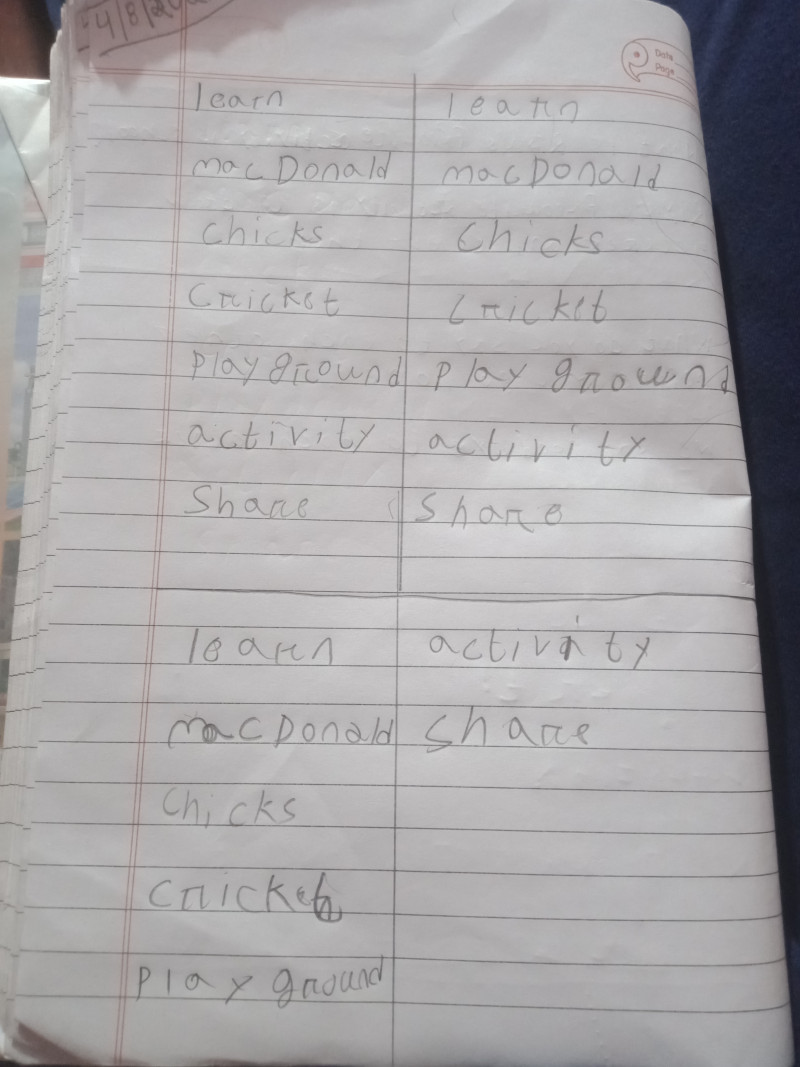 4/8/20
Date
Page
learn learn
macDonald macDonald
chicks chicks
Cricket cricket
Playground Play ground
activity activity
Share Share
learn activity
macDonald Share
Chicks
cricket
Play ground